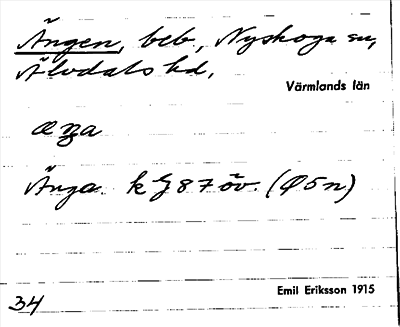 Ängen, beb., Nyskoga sn,
Älvdals hd,
Värmlands län
æŋa
Änga. k ξ 87 öv. (Ø5n)
Emil Eriksson 1915
34